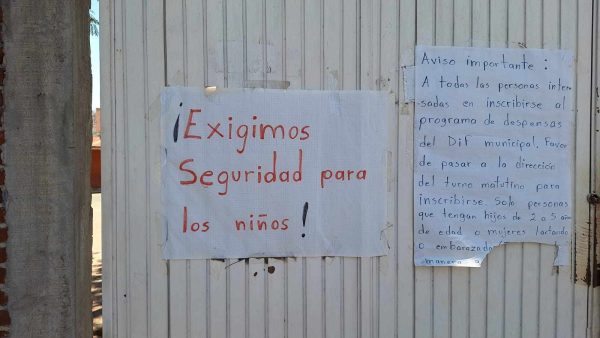 ¡Exigimos
Seguridad para
los niños!
Aviso importante :
A todas las personas intere
sadas en inscribirse al
programa de despensas
del DIF municipal. Favor
de pasar a la dirección
del turno matutino para
inscribirse. Solo personas
que tengan hijos de 2 a 5 años
de edad o mujeres lactando
o embarazada
manera